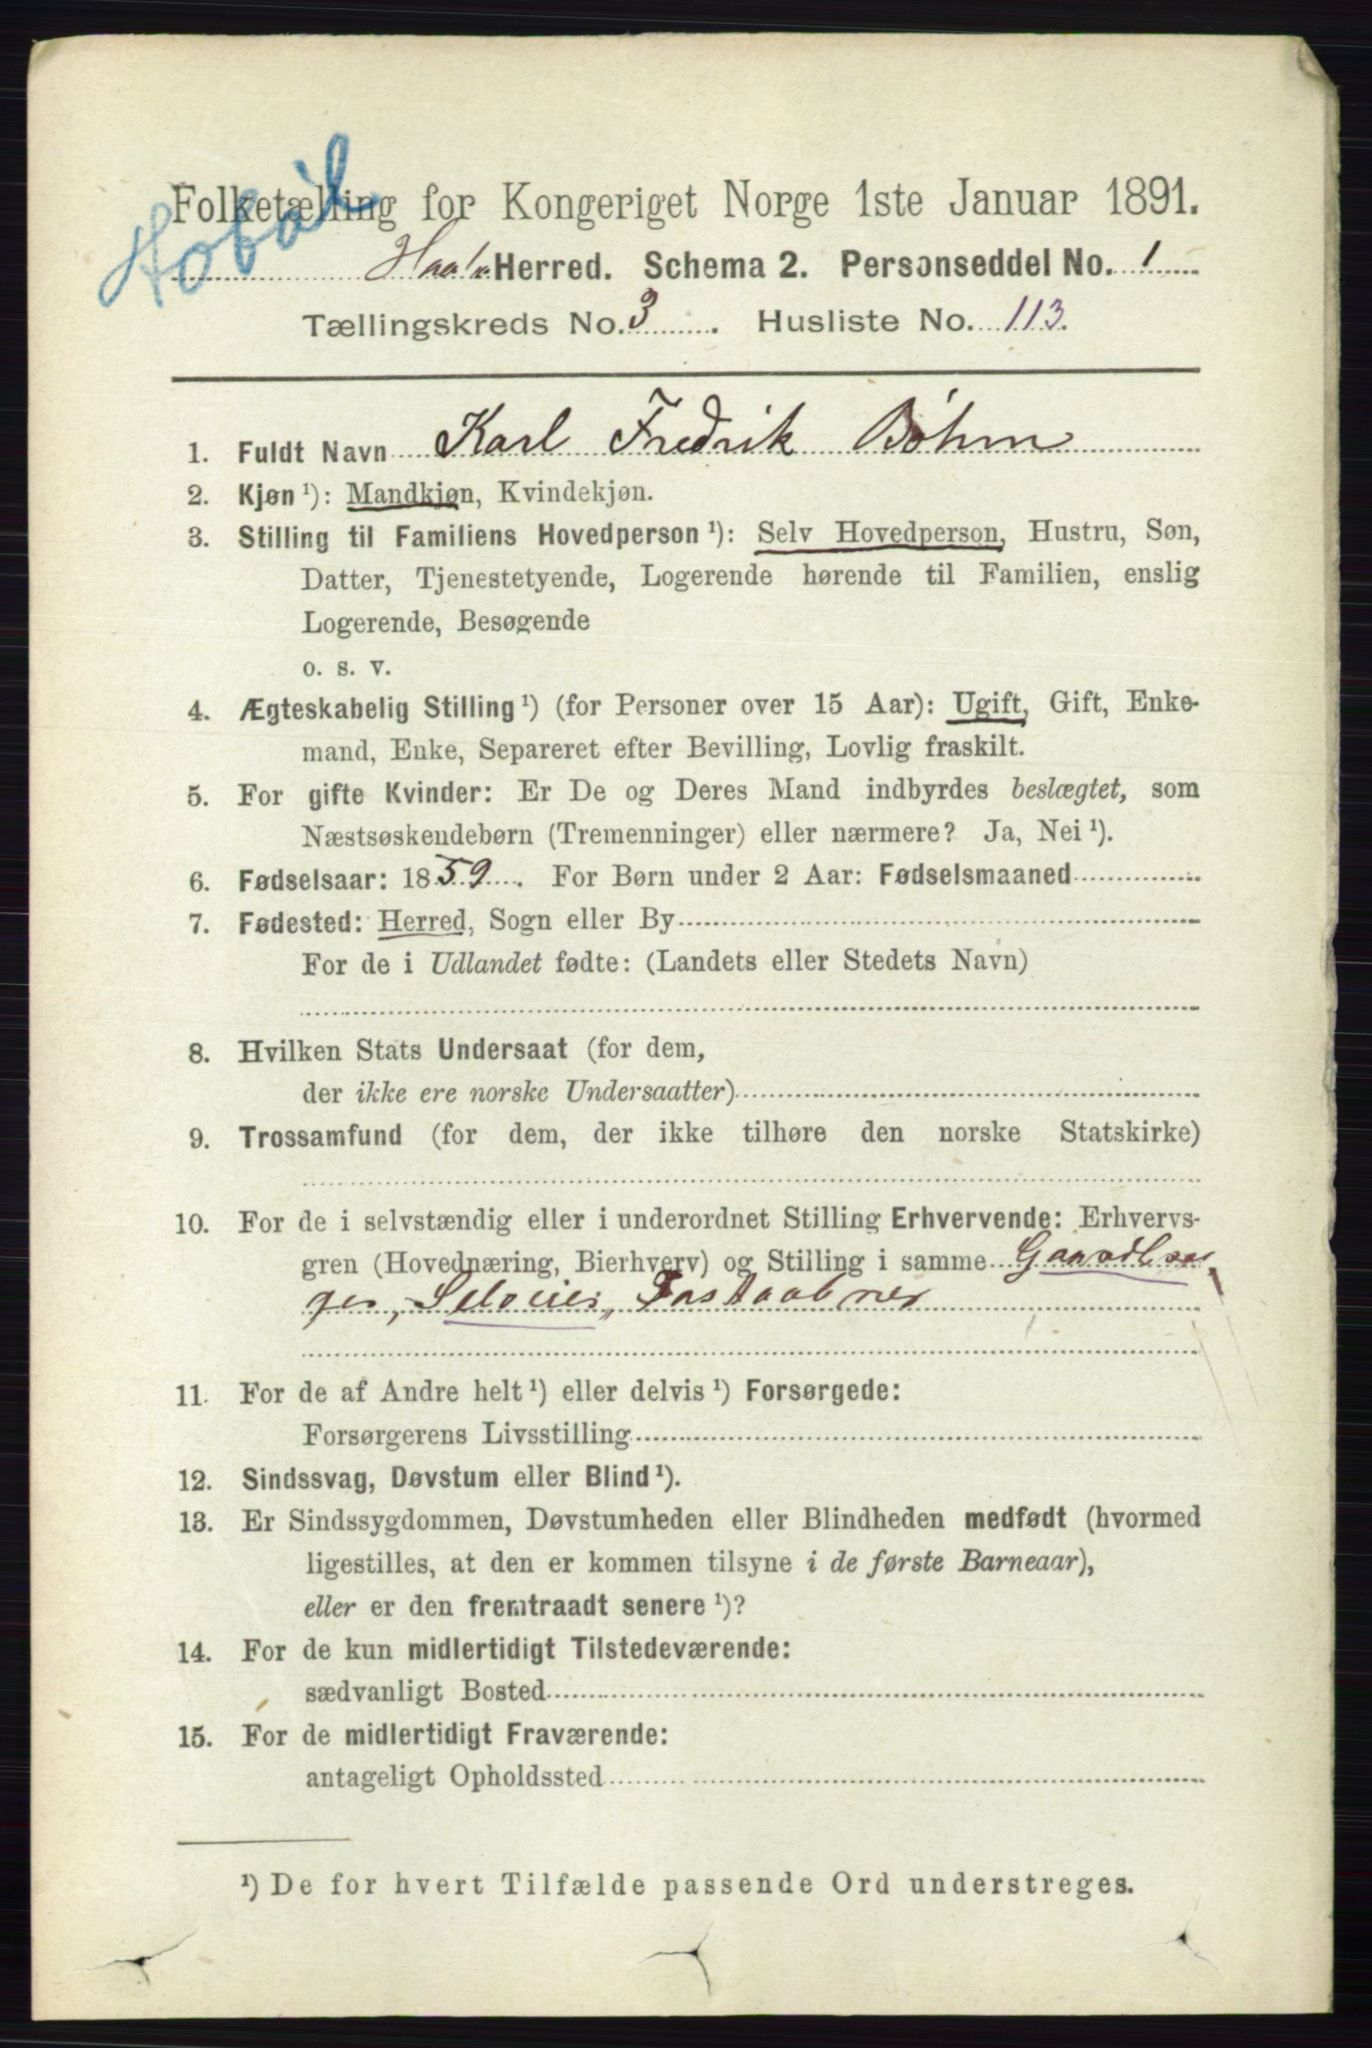 Hobøl
Folketælling for Kongeriget Norge 1ste Januar 1891.
Herred. Schema 2. Personseddel No. 1
Tællingskreds No. 3. Husliste No. 113.
1. Fuldt Navn Karl Fredrik Böhm
2. Kjøn ¹): Mandkjøn, Kvindekjøn.
3. Stilling til Familiens Hovedperson ¹): Selv Hovedperson, Hustru, Søn,
Datter, Tjenestetyende, Logerende hørende til Familien, enslig
Logerende, Besøgende
o. s. v.
4. Ægteskabelig Stilling ¹) (for Personer over 15 Aar): Ugift, Gift, Enke-
mand, Enke, Separeret efter Bevilling, Lovlig fraskilt.
5. For gifte Kvinder: Er De og Deres Mand indbyrdes beslægtet, som
Næstsøskendebørn (Tremenninger) eller nærmere? Ja, Nei ¹).
6. Fødselsaar: 1859. For Børn under 2 Aar: Fødselsmaaned
7. Fødested: Herred, Sogn eller By
For de i Udlandet fødte: (Landets eller Stedets Navn)
8. Hvilken Stats Undersaat (for dem,
der ikke ere norske Undersaatter)
9. Trossamfund (for dem, der ikke tilhøre den norske Statskirke)
10. For de i selvstændig eller i underordnet Stilling Erhvervende: Erhvervs-
gren (Hovednæring, Bierhverv) og Stilling i samme
Selveier,
11. For de af Andre helt ¹) eller delvis ¹) Forsørgede:
Forsørgerens Livsstilling
12. Sindssvag, Døvstum eller Blind ¹).
13. Er Sindssygdommen, Døvstumheden eller Blindheden medfødt (hvormed
ligestilles, at den er kommen tilsyne i de første Barneaar),
eller er den fremtraadt senere ¹)?
14. For de kun midlertidigt Tilstedeværende:
sædvanligt Bosted
15. For de midlertidigt Fraværende:
antageligt Opholdssted
¹) De for hvert Tilfælde passende Ord understreges.